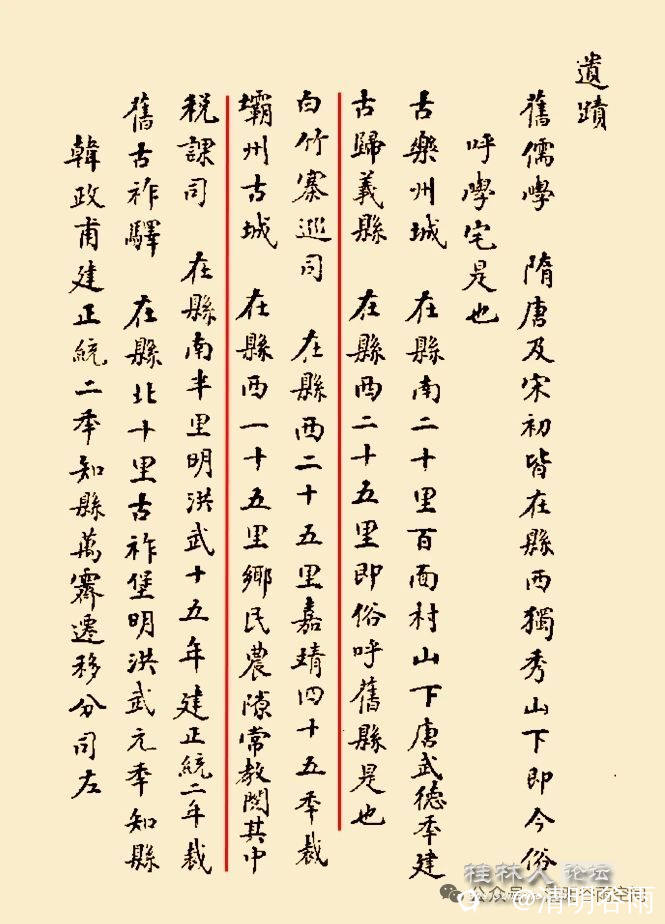 遺蹟
舊儒學　隋唐及宋初皆在縣西獨秀山下即今俗
呼學宅是也
古樂州城　在縣南二十里百面村山下唐武德年建
古歸義縣　在縣西二十五里即俗呼舊縣是也
白竹寨巡司　在縣西二十五里嘉靖四十五年裁
壩州古城　在縣西一十五里鄉民農隙常教閱其中
稅課司　在縣南半里明洪武十五年建正統二年裁
舊古祚驛　在縣北十里古祚堡明洪武元年知縣
韓政甫建正統二年知縣萬霽遷移分司左
桂林人论坛
公众号
@清明谷雨